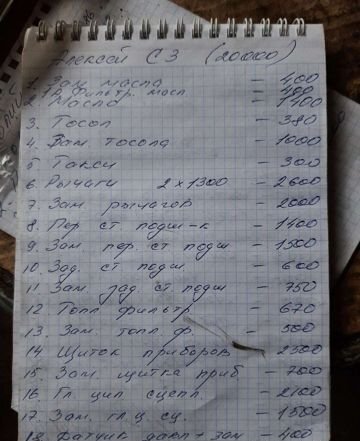 Алексей С 3 (20000)
1. Зам. масла - 400
1а Фильтр. масл - 400
2. Масло - 1400
3. Тосол - 380
4. Зам. тосола - 1000
5 Такси - 300
6. Рычаги 2 х 1300 - 2600
7. Зам рычагов - 2000
8. Пер ст подш-к - 1400
9. Зам. пер. ст подш - 1500
10. Зад. ст подш. - 600
11 Зам. зад ст подш - 750
12 Топл фильтр - 670
13. Зам. топл. ф. - 500
14 Щиток приборов - 2500
15. Зам. щитка приб - 700
16. Гл. цил сцепл. - 2100
17. Зам. гл. ц. сц. - 1500
18. Датчик давл + зам - 400